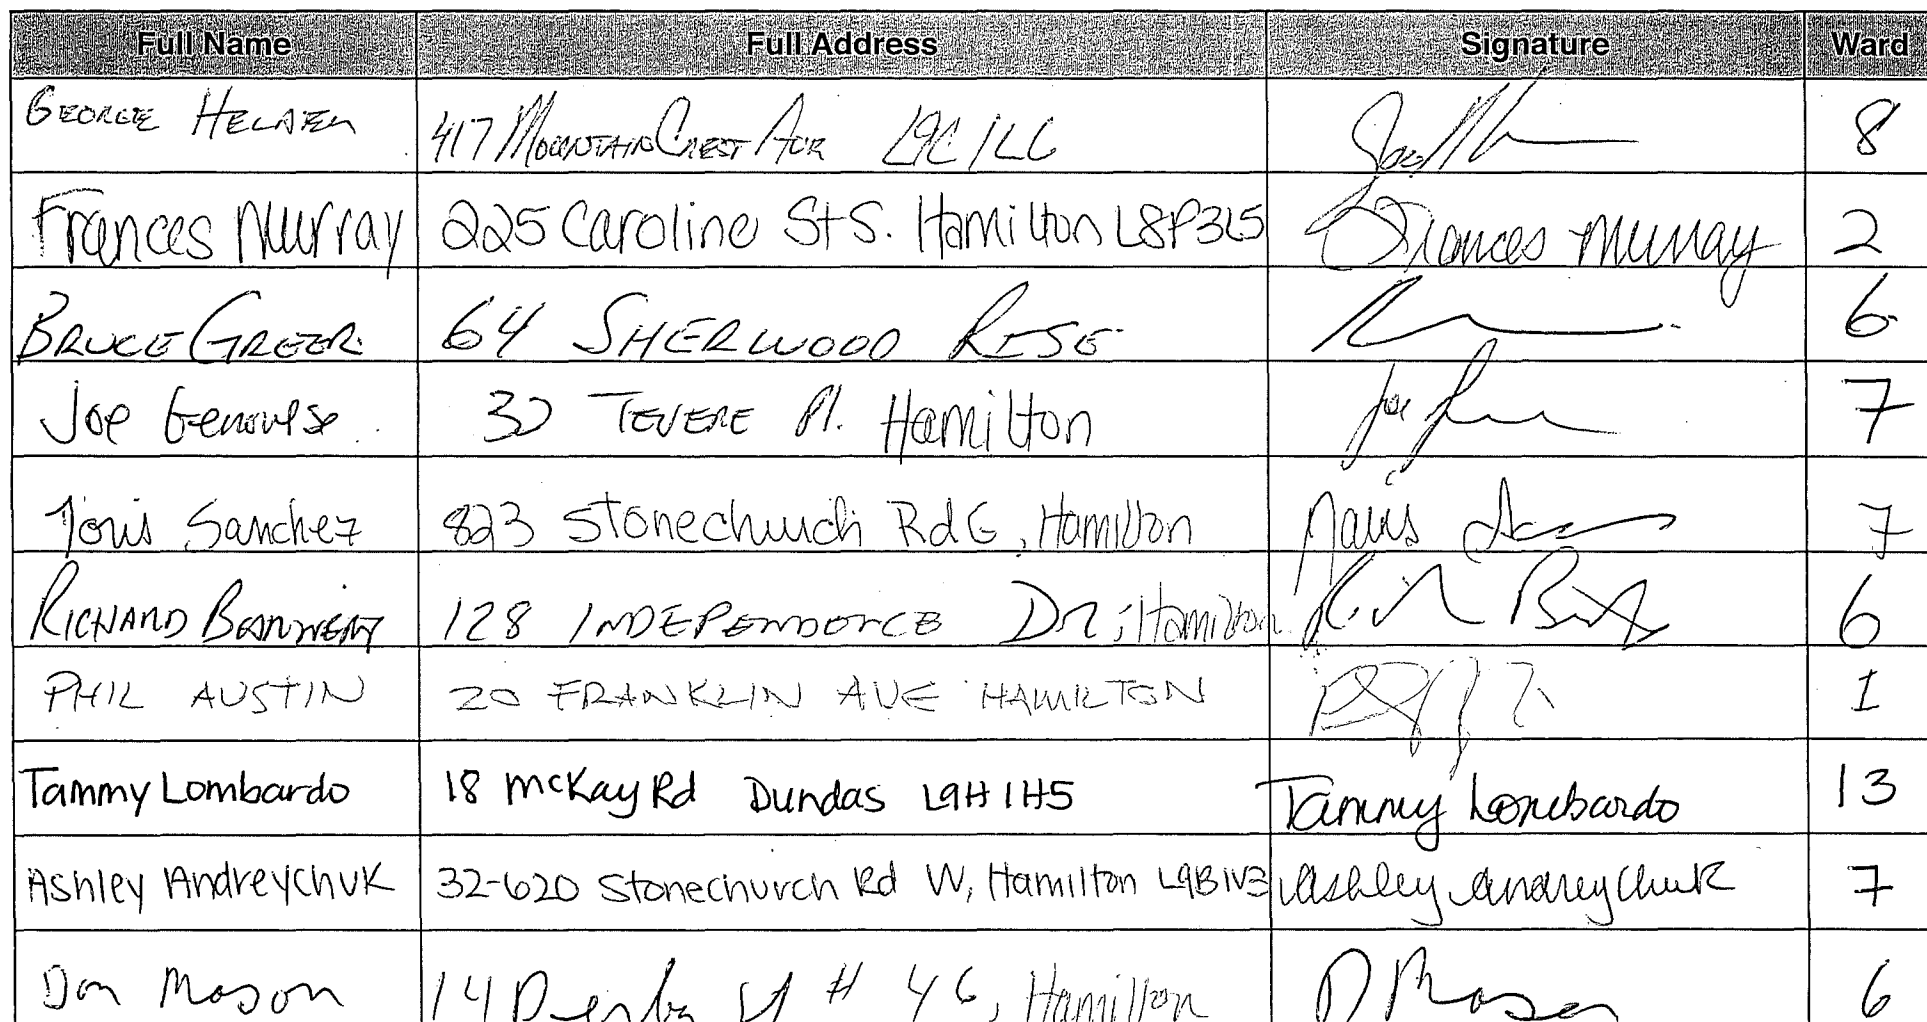 Full Name Full Address Signature Ward
GEORGE 417 MOUNTAIN CREST AVE L9C 1L6 8
Frances Murray 225 Caroline St S. Hamilton L8P3L5 Frances Murray 2
BRUCE GREER 64 SHERWOOD RISE 6
Joe Genovese 30 TEVERE Pl. Hamilton Joe 7
Sanchez 823 Stonechurch Rd E, Hamilton 7
RICHARD 128 INDEPENDENCE DR; Hamilton 6
PHIL AUSTIN 20 FRANKLIN AVE HAMILTON 1
Tammy Lombardo 18 McKay Rd Dundas L9H 1H5 Tammy Lombardo 13
Ashley Andreychuk 32-620 Stonechurch Rd W, Hamilton L9B1V3 Ashley Andreychuk 7
Don Mason 14 # 46, Hamilton D Mason 6